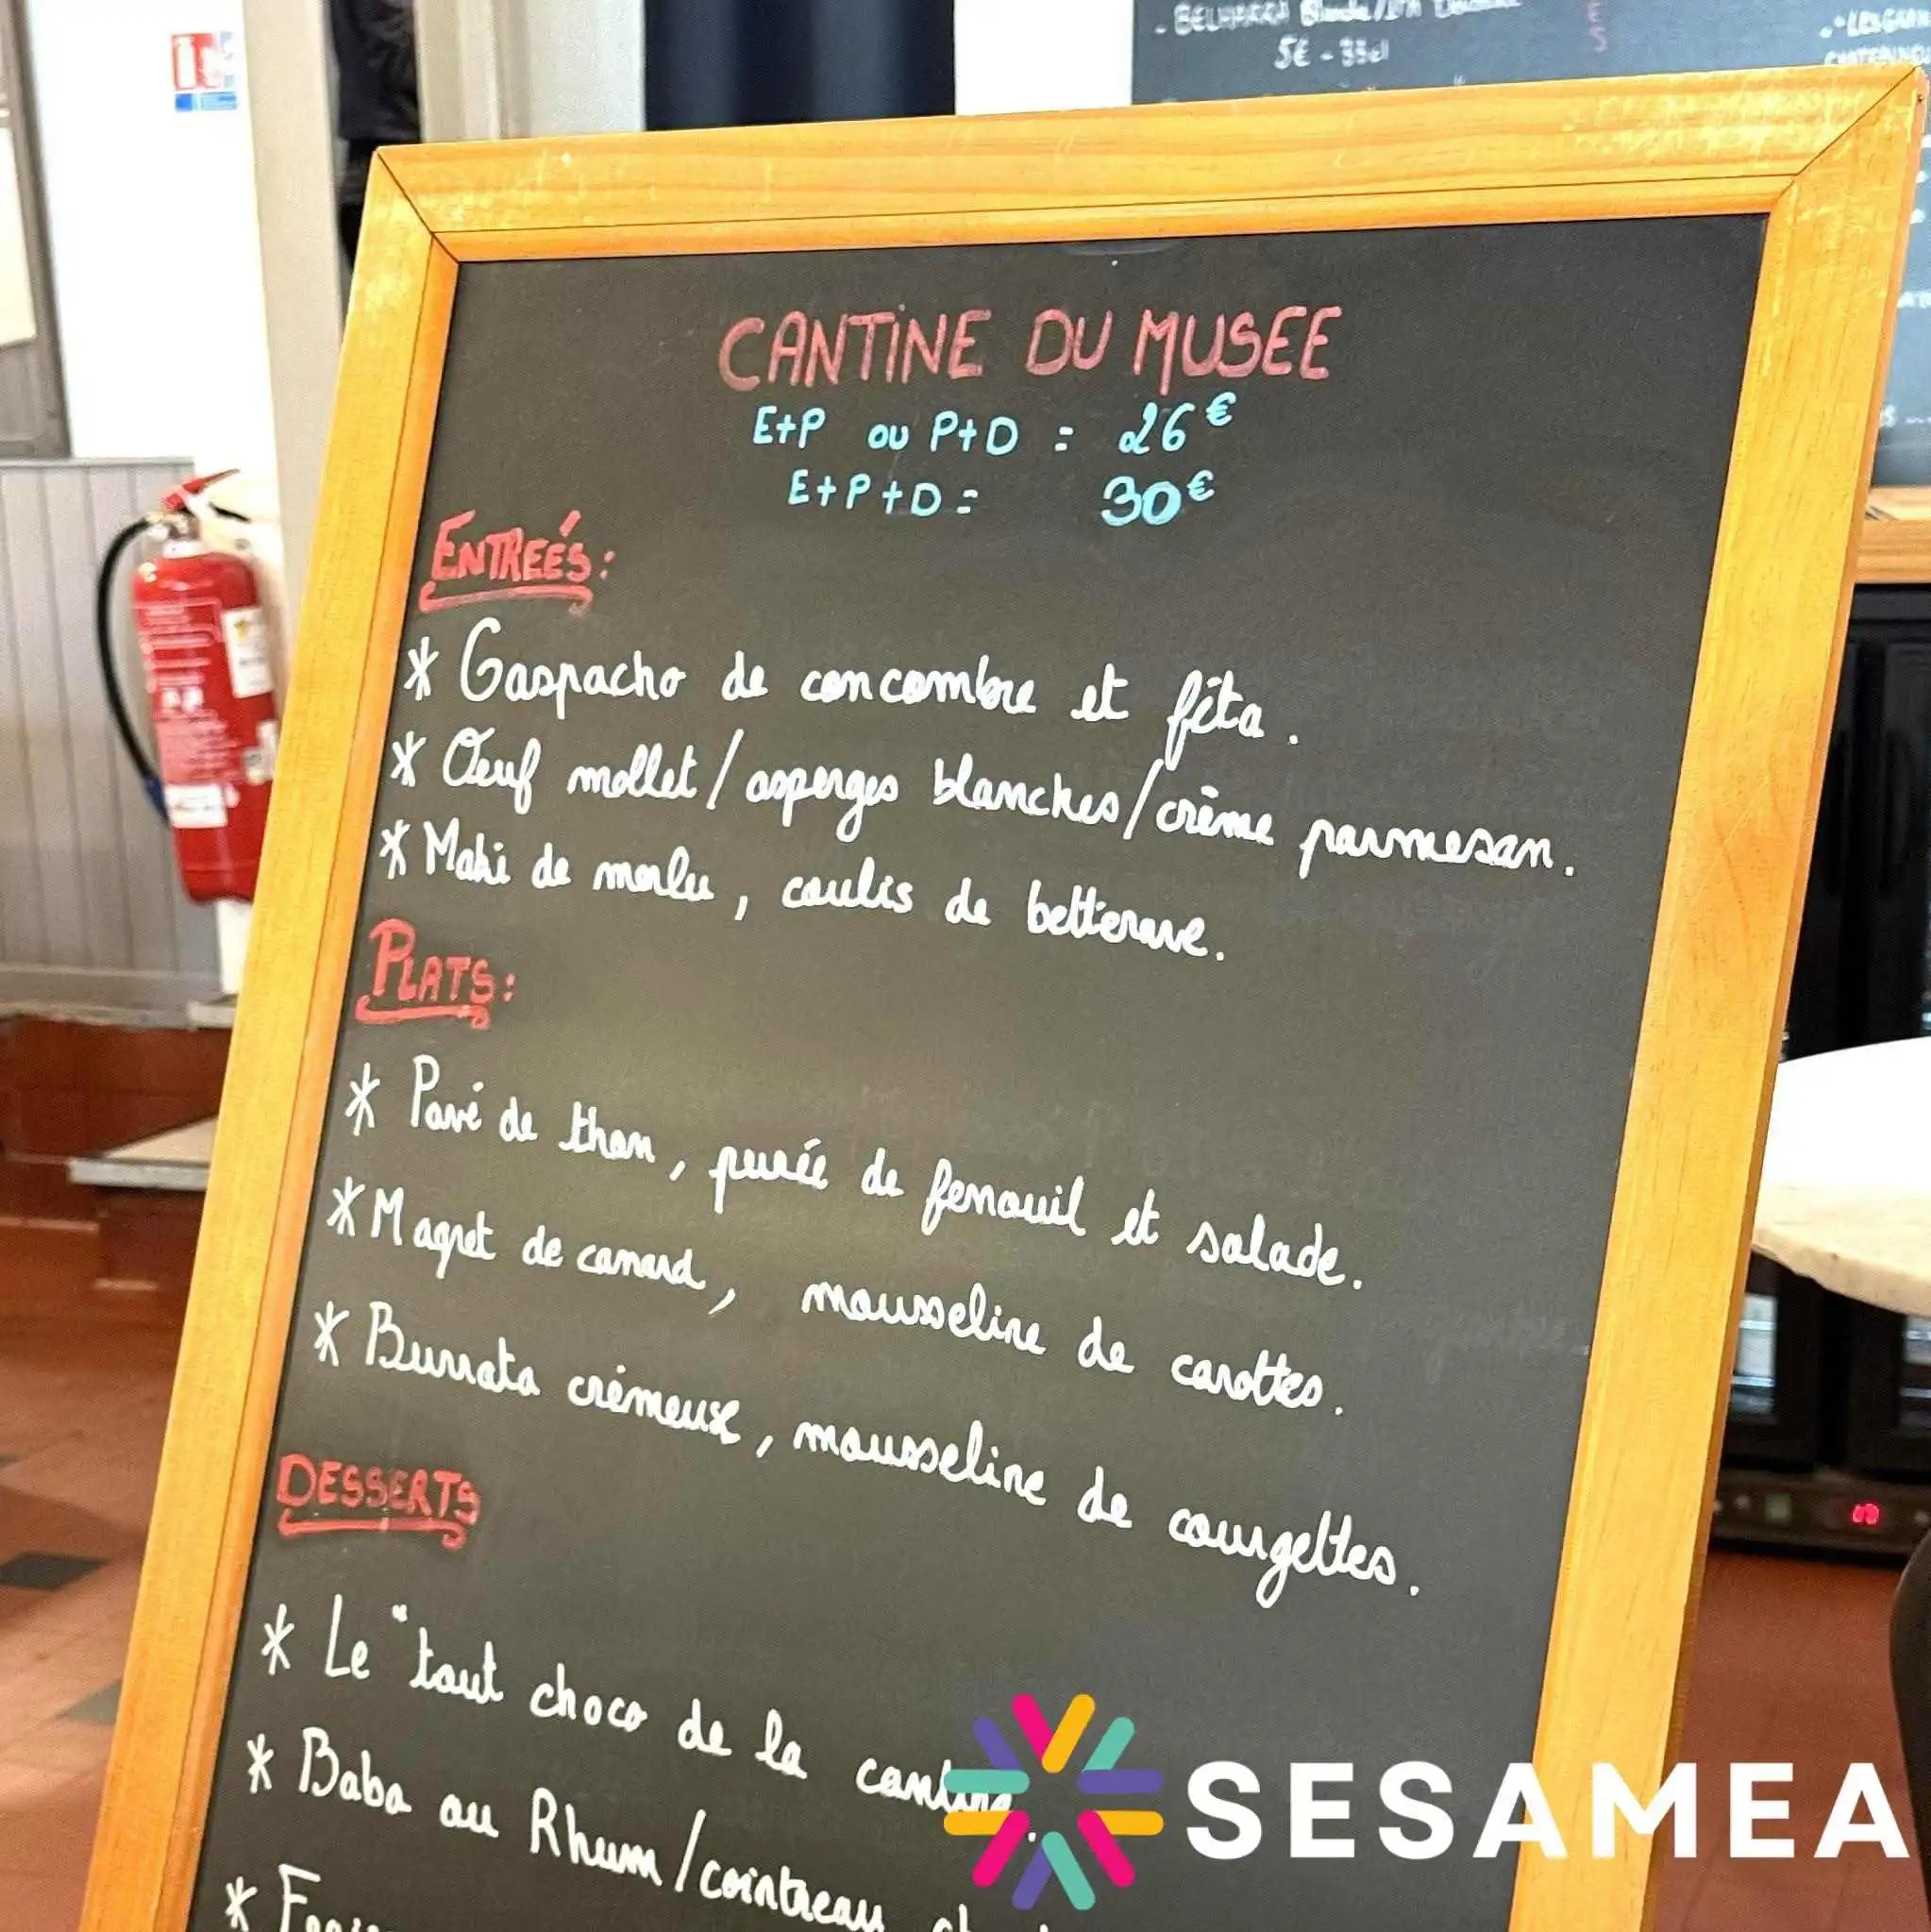 - BELHARRA Blonde/IPA
5€ - 33cl
CANTINE DU MUSEE
E+P ou P+D = 26€
E+P+D = 30€
ENTREÉS:
* Gaspacho de concombre et fêta.
* Œuf mollet/asperges blanches/crème parmesan.
* Maki de merlu, coulis de betterave.
PLATS:
* Pavé de thon, purée de fenouil et salade.
* Magret de canard, mousseline de carottes.
* Burrata crémeuse, mousseline de courgettes.
DESSERTS
* Le "tout choco de la cantine.
* Baba au Rhum/cointreau
*
SESAMEA